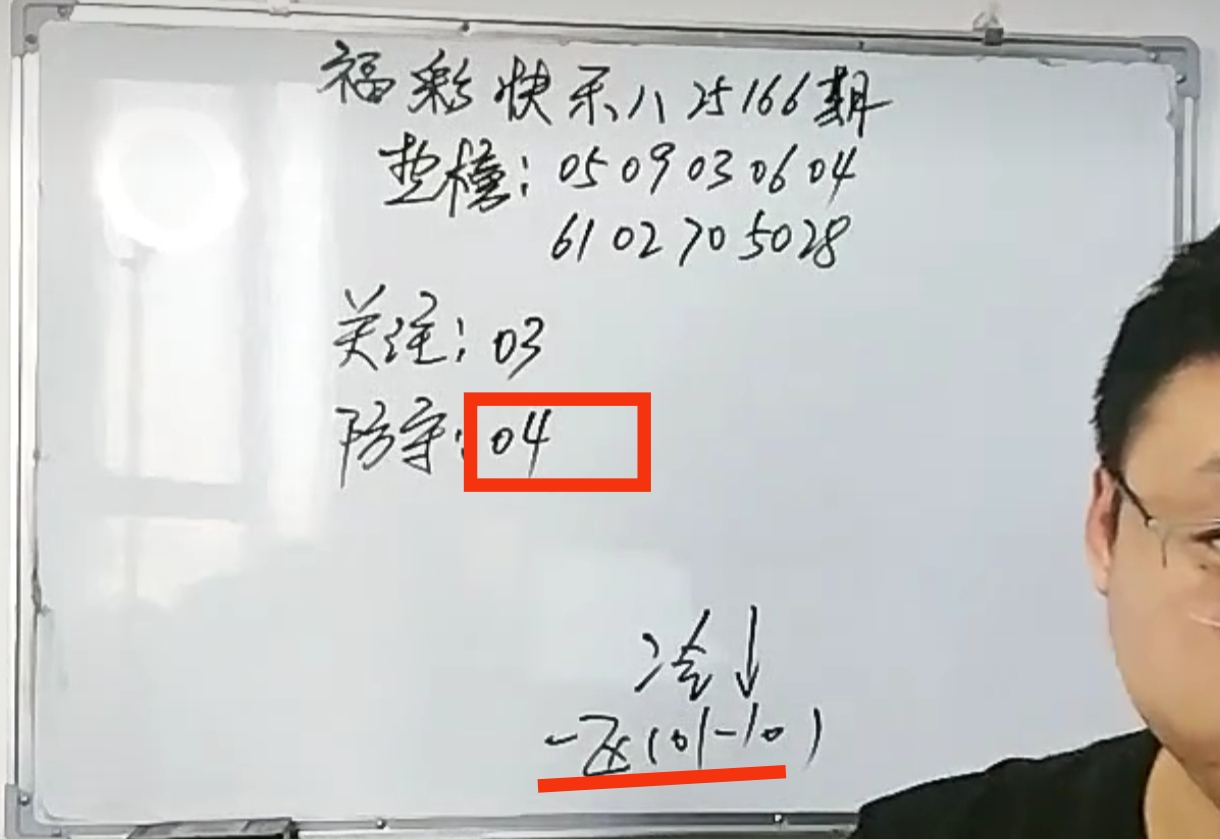 福彩快乐八25166期
垫樘: 05 09 03 06 04
61 02 70 50 28
关注: 03
防守: 04
冷↓
一区(01-10)